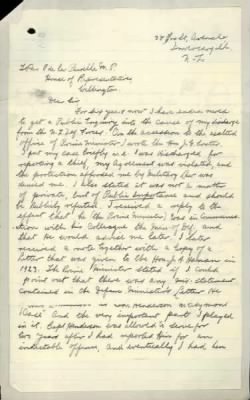 N.Z.
To Hon P. de la Perrelle M.P.
House of Representatives
Wellington
Dear Sir
For six years now I have endeavoured
to get a Public Inquiry into the cause of my discharge
from the N.Z. Def Forces. On the accession to the exalted
office of Prime Minister I wrote the Hon J.G. Coates.
I put my case briefly, i.e. I was discharged for
reporting a thief, my Agreement was violated, and
the protection afforded me by Military Law was
denied me. I also stated it was not a matter
of private, but of Public Importance and should
be Publicly refuted. I received a reply to the
effect that he (the Prime Minister) was in Communica-
tion with his Colleague the Min of Def, and
that He would advise me later. I later
received a note together with a Copy of a
Letter that was given to the Hon J.A. Hanan in
1923. The Prime Minister stated if I could
point out that there was any mis-statement
contained in the Defence Ministers Letter. He
Henderson
Case" and the very important part I played
in it. Capt Henderson was allowed to serve for
two years after I had reported Him for an
indictable offence, and eventually I had him